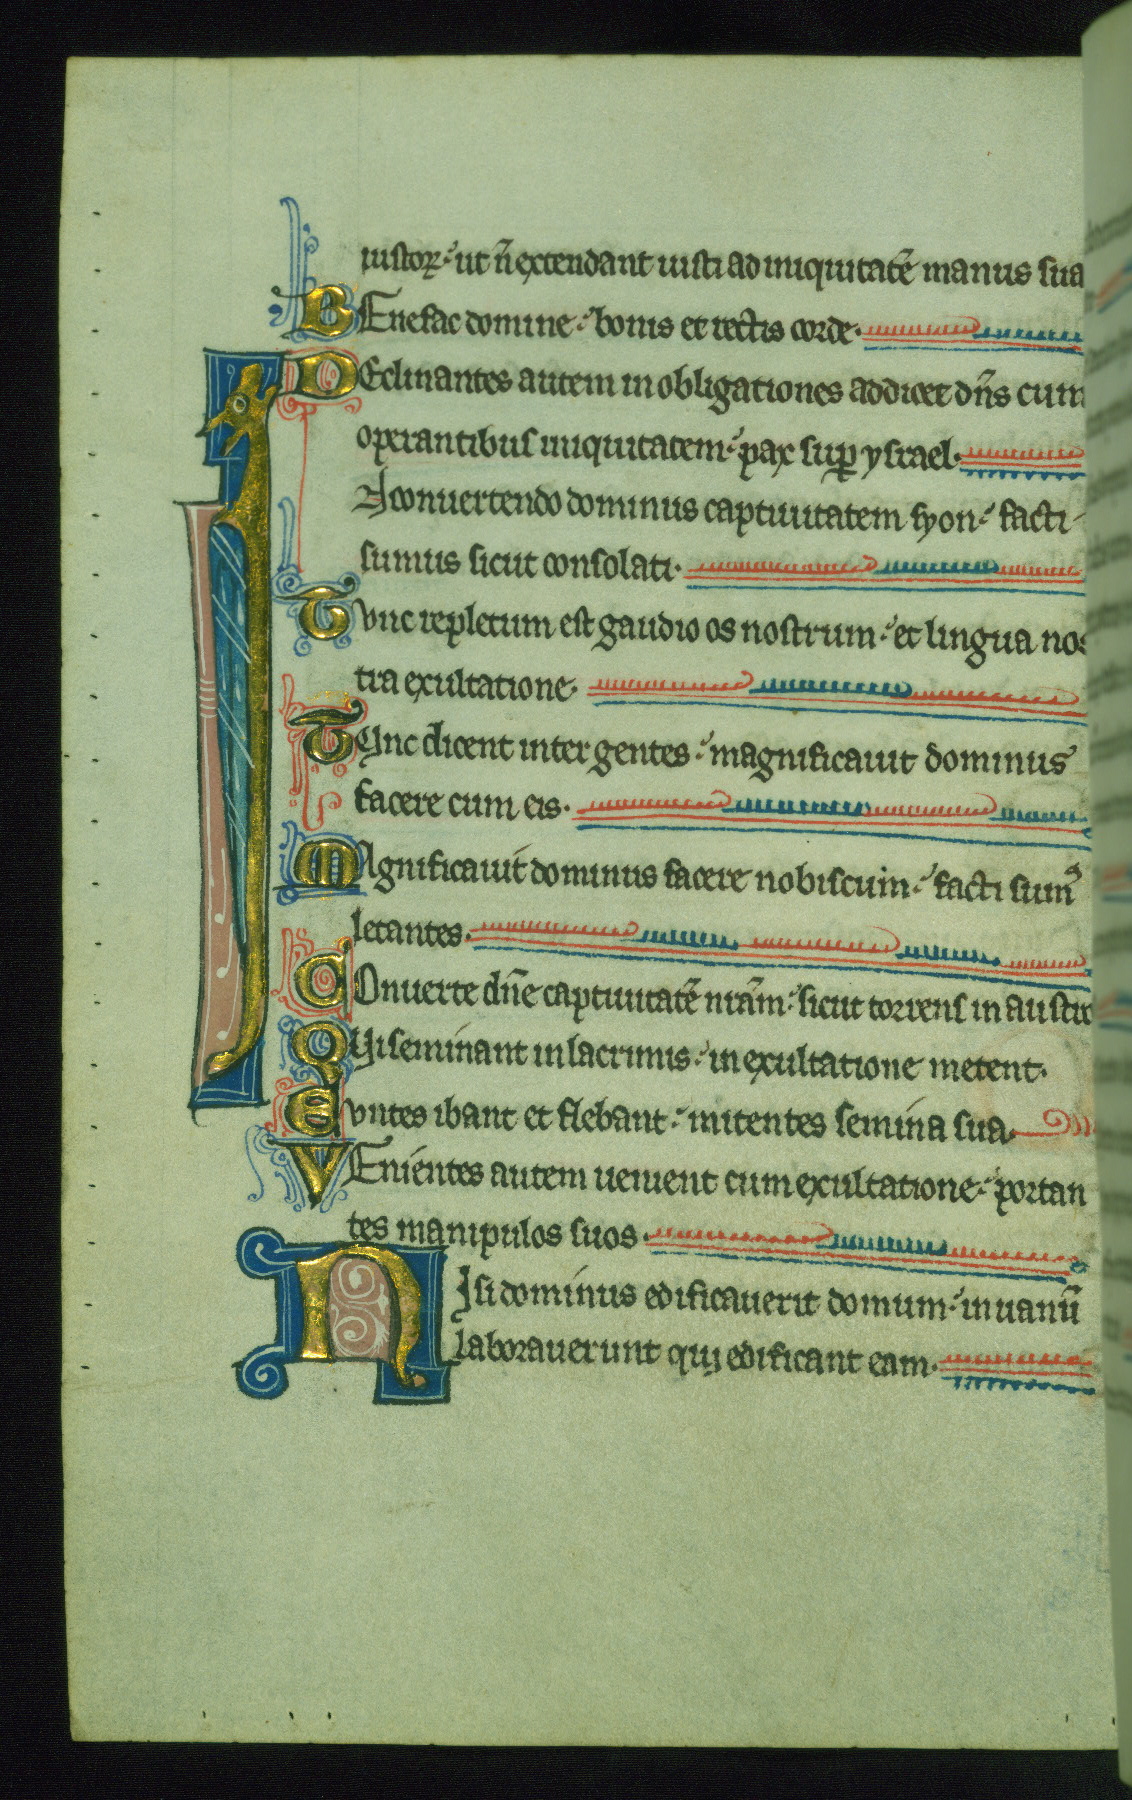 iustoꝝ ut ñ extendant iusti ad iniquitatē manus sua
BEnefac domine bonis et rectis corde.
DEclinantes autem in obligationes adducet dñs cum
operantibus iniquitatem pax suꝑ ysrael.
IN conuertendo dominus captiuitatem syon facti
sumus sicut consolati.
Tvnc repletum est gaudio os nostrum et lingua nos
tra exultatione.
TVnc dicent inter gentes magnificauit dominus
facere cum eis.
MAgnificauit dominus facere nobiscum facti sumꝰ
letantes.
COnuerte dñe captiuitatē nrām sicut torrens in austro
QVi seminant in lacrimis in exultatione metent.
Evntes ibant et flebant mitentes semina sua.
VEnientes autem uenient cum exultatione portan
tes manipulos suos.
NIsi dominus edificauerit domum in uanū
laborauerunt qui edificant eam.